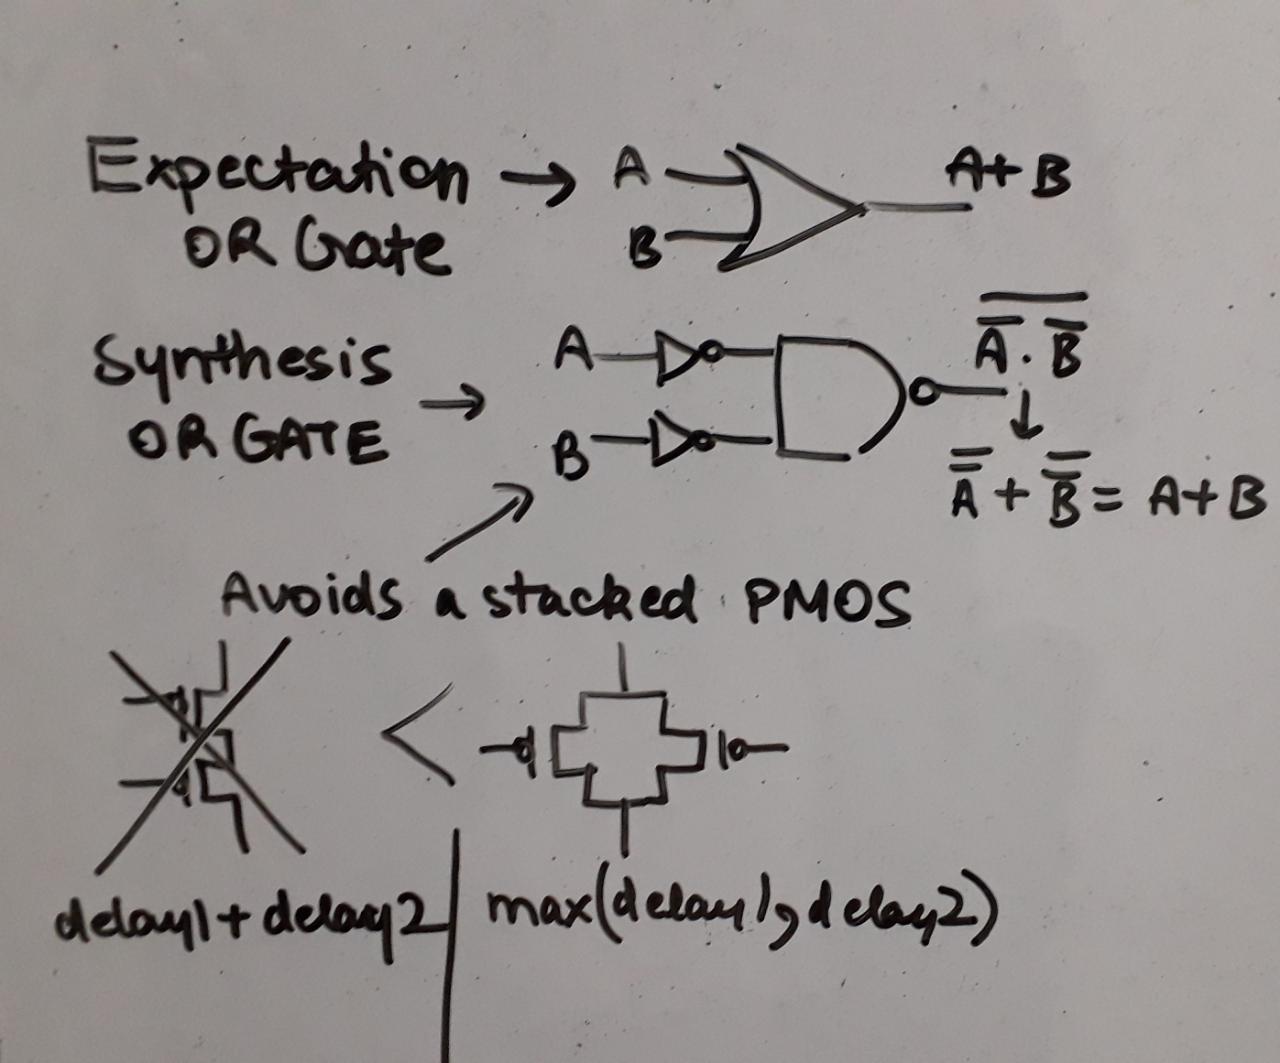 Expectation → A A+B
OR Gate B
Synthesis → A A̅.B̅
OR GATE B ↓
A̿ + B̿ = A+B
Avoids a stacked PMOS
<
delay1+delay2 | max(delay1,delay2)